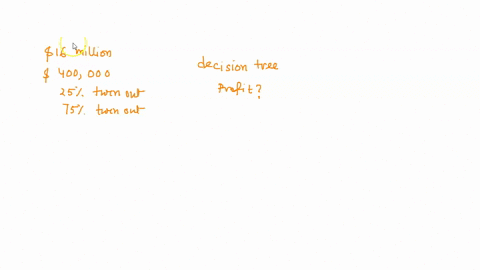 $16 million
$ 400,000
25% turn out
75% turn out
decision tree
Profit?